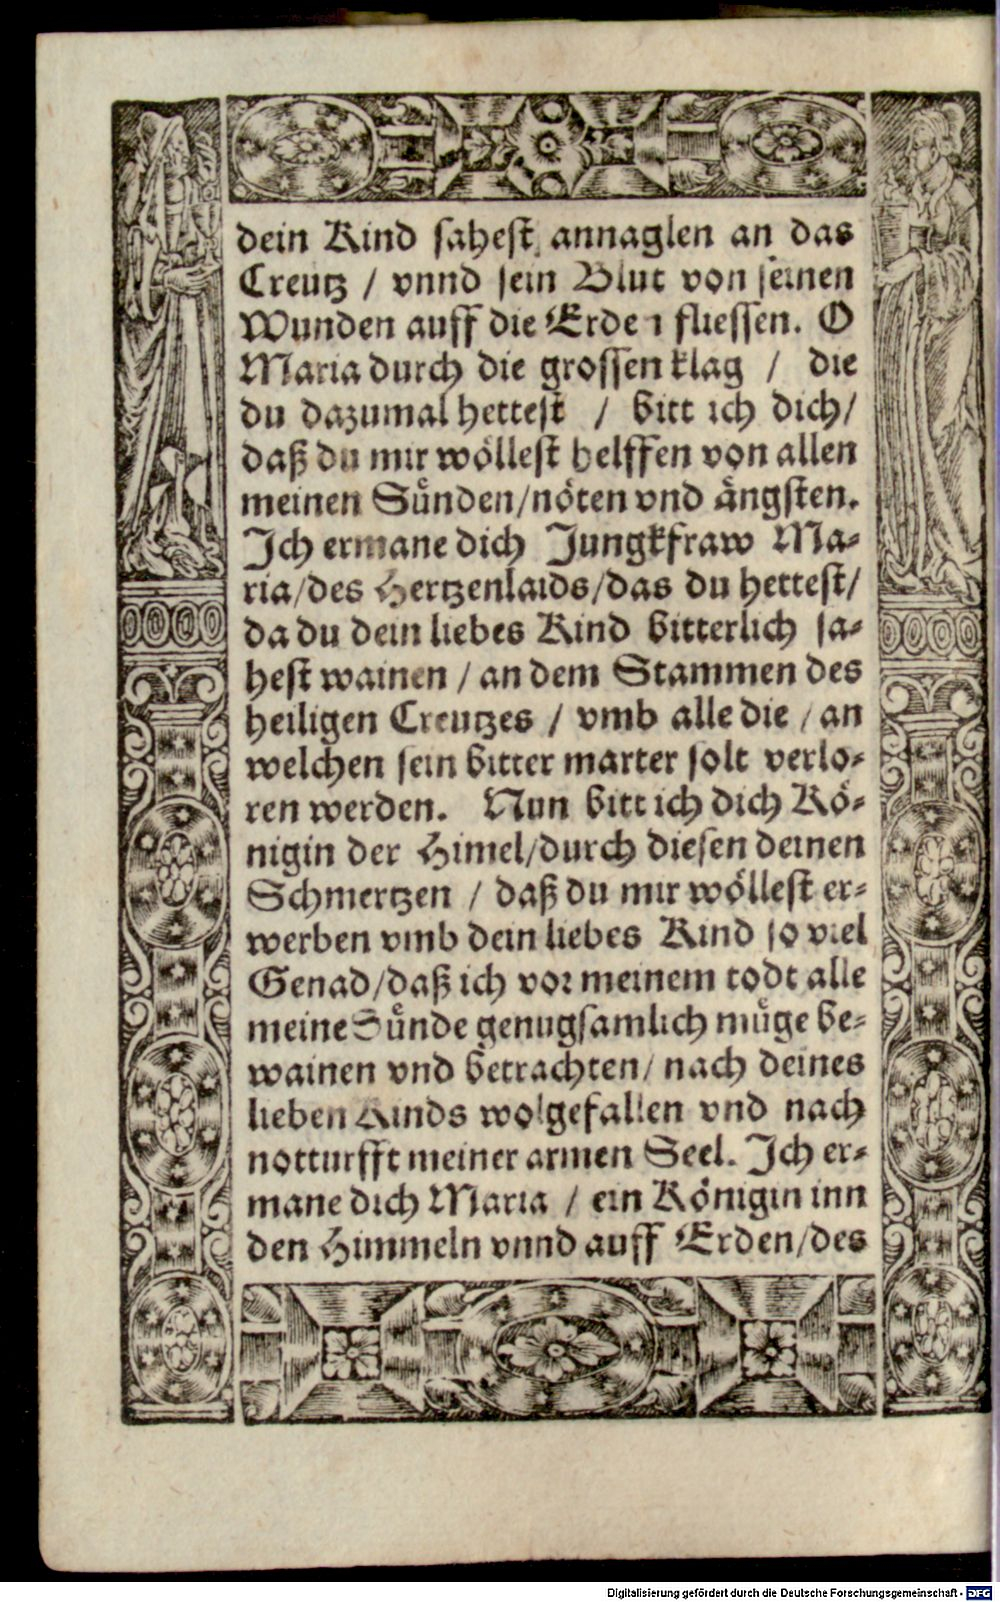 dein Kind sahest annaglen an das
Creutz / vnnd sein Blut von seinen
Wunden auff die Erden fliessen. O
Maria durch die grossen klag / die
du dazumal hettest / bitt ich dich/
daß du mir wöllest helffen von allen
meinen Sünden/nöten vnd ängsten.
Ich ermane dich Jungkfraw Ma-
ria/des Hertzenlaids/das du hettest/
da du dein liebes Kind bitterlich sa-
hest wainen / an dem Stammen des
heiligen Creutzes / vmb alle die / an
welchen sein bitter marter solt verlo-
ren werden. Nun bitt ich dich Kö-
nigin der Himel/durch diesen deinen
Schmertzen / daß du mir wöllest er-
werben vmb dein liebes Kind so viel
Genad/daß ich vor meinem todt alle
meine Sünde genugsamlich müge be-
wainen vnd betrachten/ nach deines
lieben Kinds wolgefallen vnd nach
notturfft meiner armen Seel. Ich er-
mane dich Maria / ein Königin inn
den Himmeln vnnd auff Erden/des
Digitalisierung gefördert durch die Deutsche Forschungsgemeinschaft - DFG